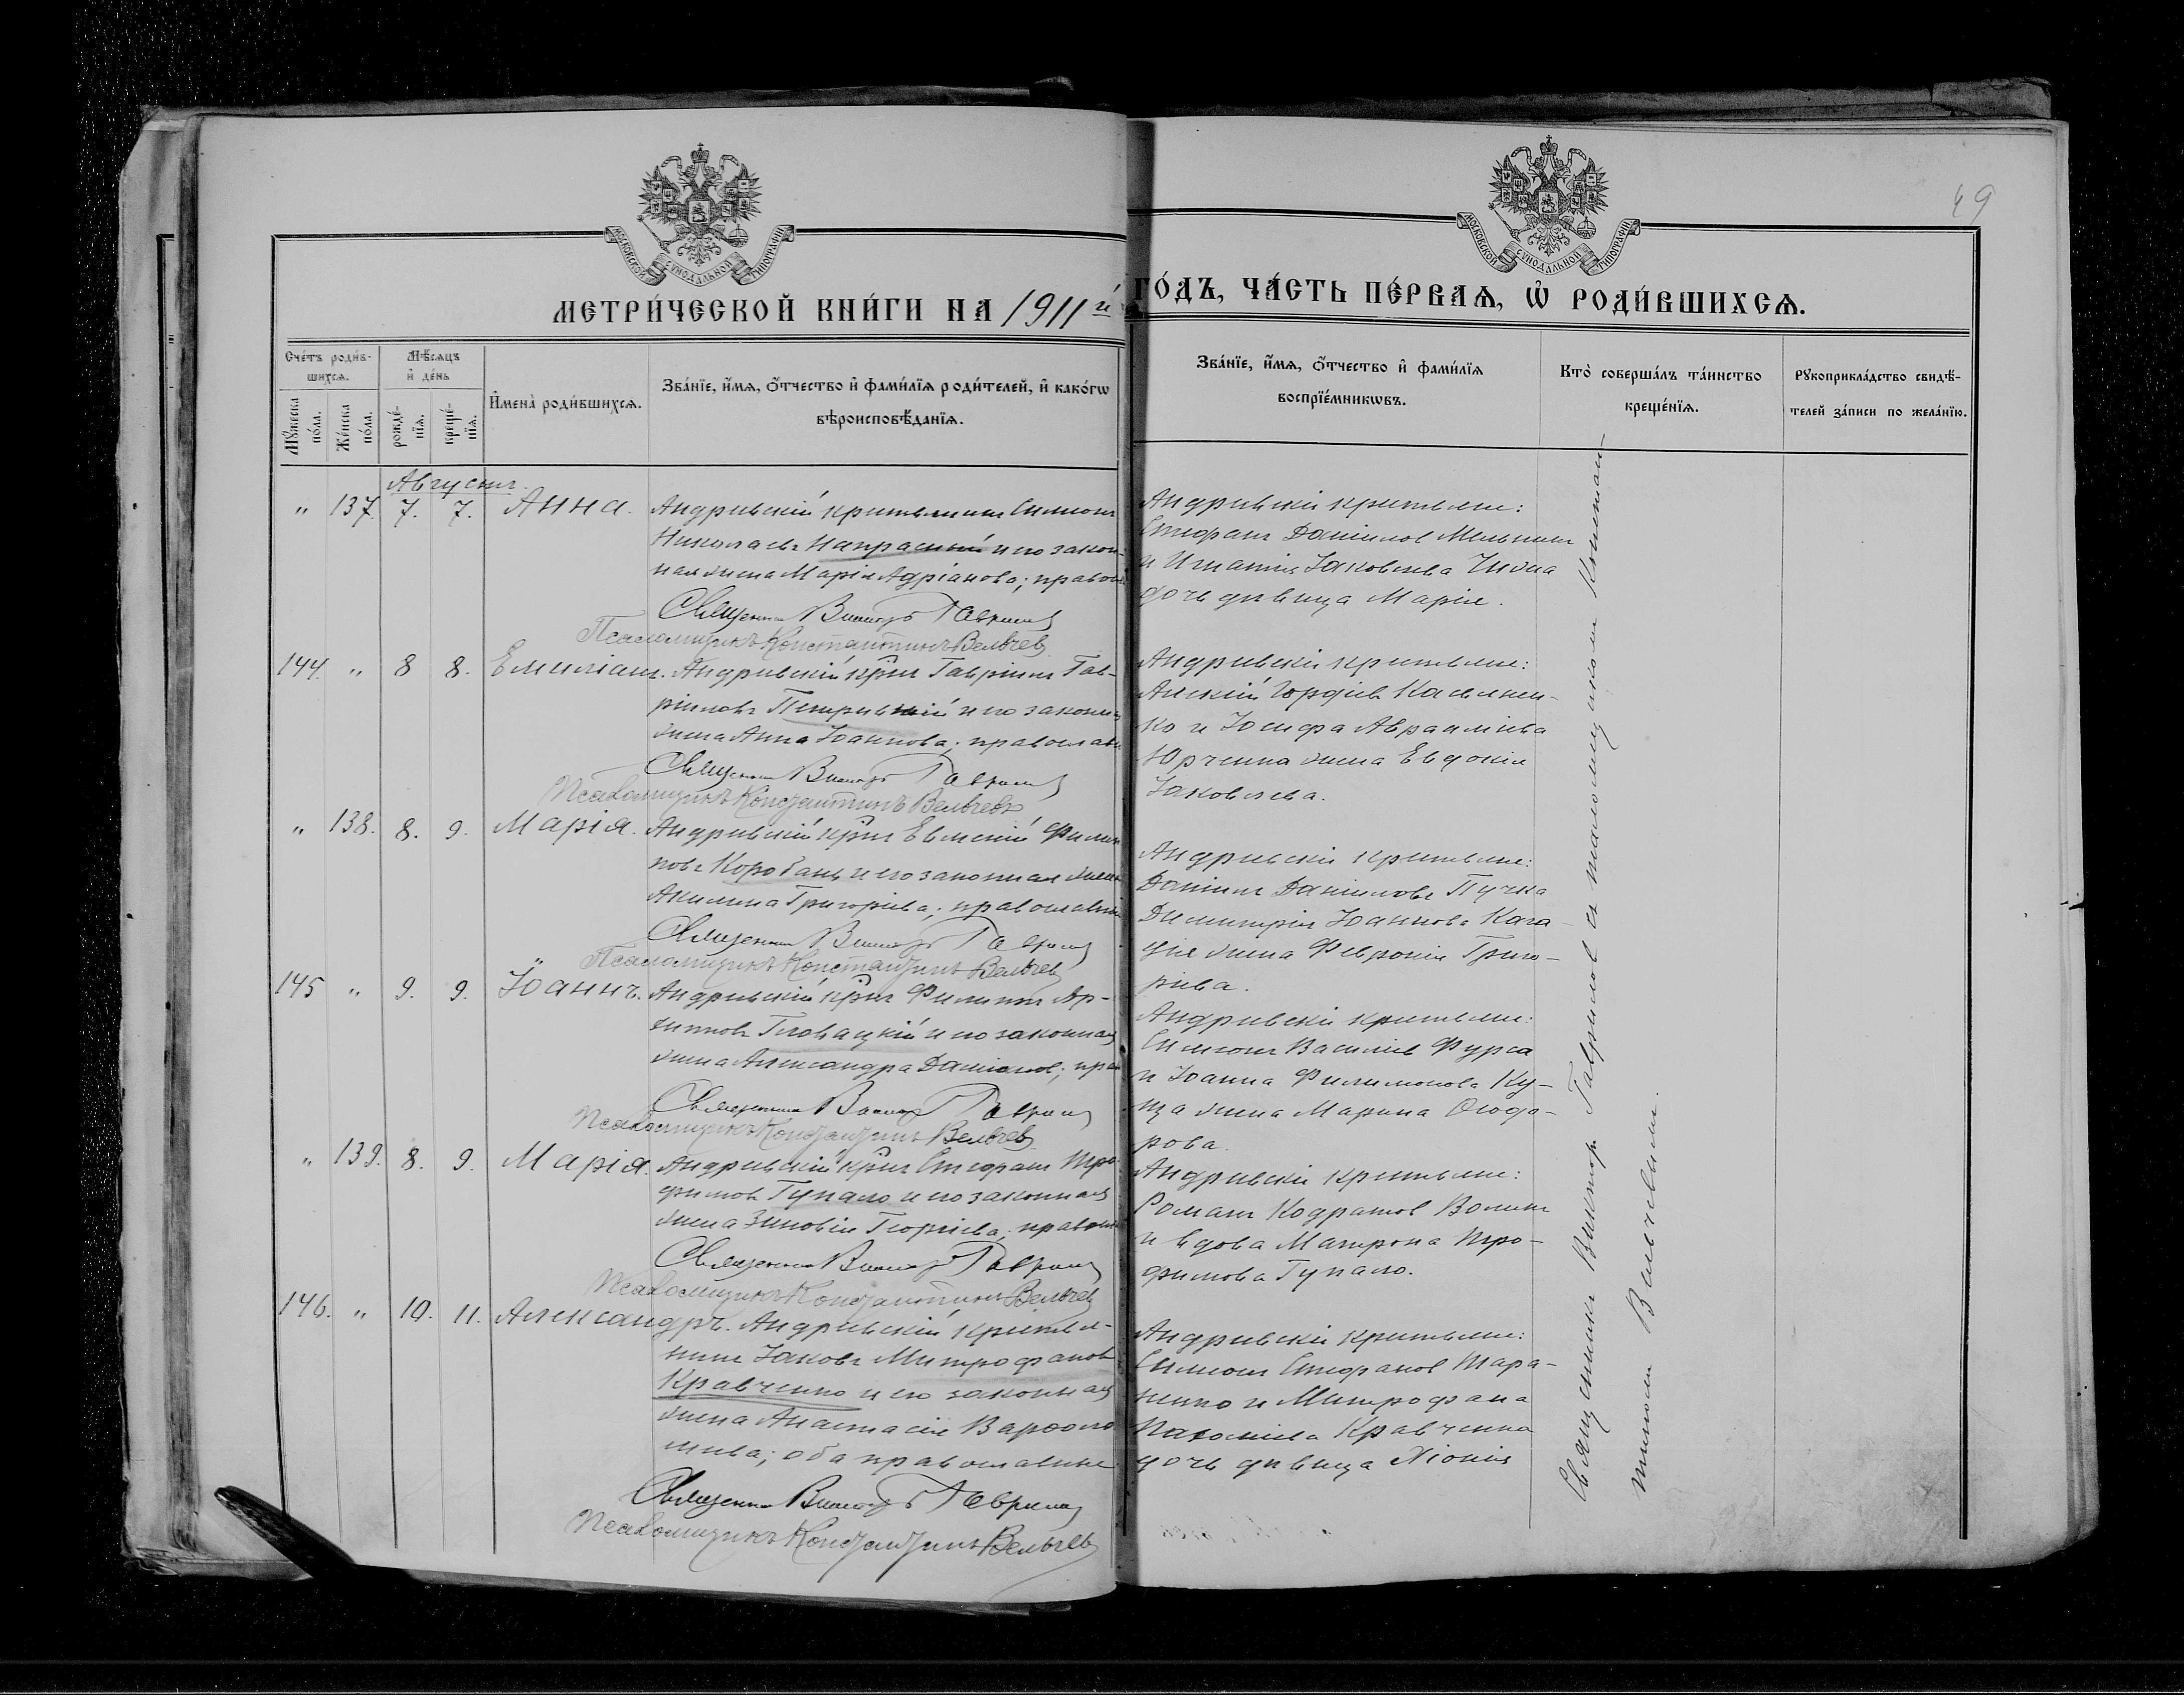 49
МОСКОВСКОЙ СѴНОДАЛЬНОЙ ТИПОГРАФІИ
МОСКОВСКОЙ СѴНОДАЛЬНОЙ ТИПОГРАФІИ
МЕТРИ́ЧЕСКОЙ КНИ́ГИ НА 1911й ГО́ДЪ, ЧА́СТЬ ПЕ́РВАѦ, Ѡ҆ РОДИ́ВШИХСѦ.
Сче́тъ роди́в-
шихсѧ.
Мꙋ́жеска по́ла.
Же́нска по́ла.
Мѣ́сѧцъ
и҆ де́нь
рожде́-
нїѧ.
креще́-
нїѧ.
И҆мена̀ роди́вшихсѧ.
Зва́нїе, и҆́мѧ, ѻ҆́тчество и҆ фами́лїѧ роди́телей, и҆ како́гѡ
вѣроисповѣ́данїѧ.
Зва́нїе, и҆́мѧ, ѻ҆́тчество и҆ фами́лїѧ
воспрїе́мникѡвъ.
Кто̀ соверша́лъ та́инство
креще́нїѧ.
Рꙋкоприкла́дство свидѣ́-
телей за́писи по жела́нїю.
Августъ.
" 137. 7. 7. Анна. Андреевскій крестьянинъ Симеонъ
Николаевъ Напрасный и его закон-
ная жена Марія Адріанова; правосл
Священникъ Викторъ Гавриловъ
Псаломщикъ Константинъ Вельчевъ
Андреевскіе крестьяне:
Стефанъ Даніиловъ Мельникъ
и Игнатія Іаковлева
дочь девица Марія.
144. " 8 8. Емиліанъ. Андреевскій крнъ Гавріилъ Гав-
ріиловъ и его законная
жена Анна Іоаннова; православн
Священникъ Викторъ Гавриловъ
Псаломщикъ Константинъ Вельчевъ
Андреевскіе крестьяне:
Алексій Гордіевъ
ко и Іосифа Авраамiева
Юрченка жена Евдокія
Іаковлева.
" 138. 8. 9. Марія. Андреевскій крнъ Евмений Филип
повъ Коробанъ и его законная жена
Акилина Григоріева; православн
Священникъ Викторъ Гавриловъ
Псаломщикъ Константинъ Вельчевъ
Андреевскіе крестьяне:
Даніилъ Даніиловъ Пучка
Димитрія Іоаннова Кага-
жена Февронія Григо-
ріева.
145 " 9. 9. Іоаннъ. Андреевскій крнъ Филиппъ Ар-
хиповъ Гловацкій и его законная
жена Александра ; прав
Священникъ Викторъ Гавриловъ
Псаломщикъ Константинъ Вельчевъ
Андреевскіе крестьяне:
Симеонъ Василіевъ Фурса
и Іоанна Филимонова Ку-
ща жена Марина Ѳеодо-
рова.
" 139. 8. 9. Марія. Андреевскій крнъ Стефанъ Тро-
фимовъ Гупало и его законная
жена Зиновія Георгіева; правосл
Священникъ Викторъ Гавриловъ
Псаломщикъ Константинъ Вельчевъ
Андреевскіе крестьяне:
Романъ Кодратовъ
и вдова Матрона Тро-
фимова Гупало.
146. " 10. 11. Александръ. Андреевскій крестья-
нинъ Іаковъ Митрофановъ
Кравченко и его законная
жена Анастасія Варѳоло
меева; оба православные
Священникъ Викторъ Гавриловъ
Псаломщикъ Константинъ Вельчевъ
Андреевскіе крестьяне:
Симеонъ Стефановъ Тара-
ненко и Митрофана
Пахоміева Кравченка
дочь девица Хіонія
Священникъ Викторъ Гавриловъ съ псаломщикомъ Констан-
тиномъ Вельчевымъ.